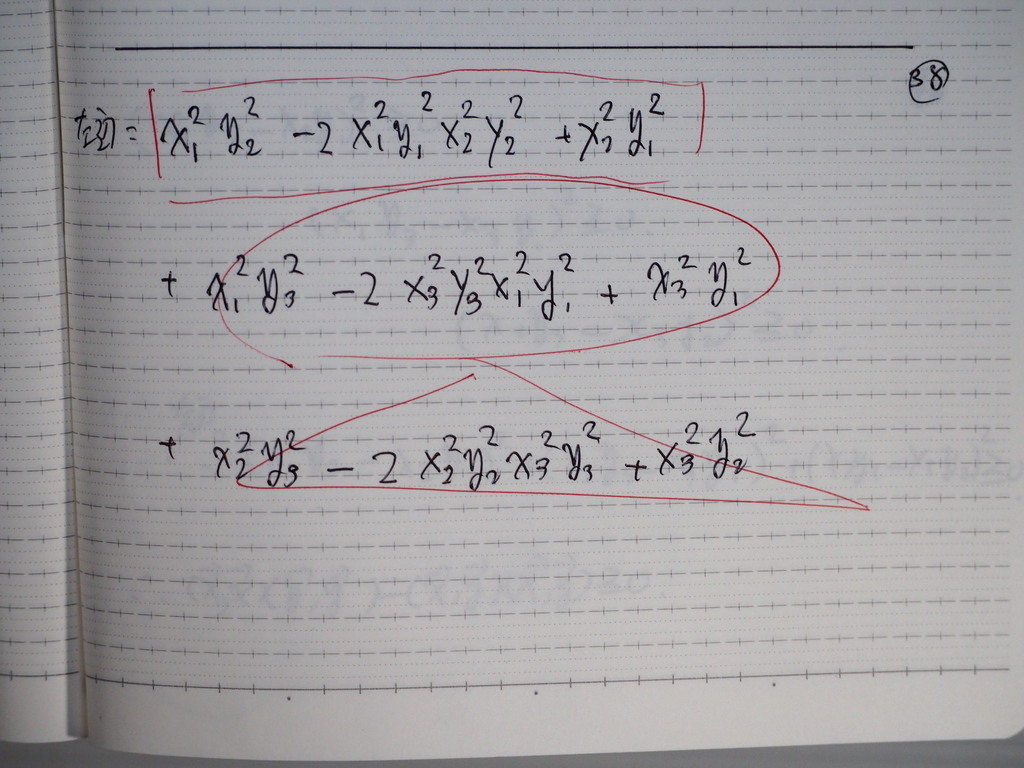 38
左辺 = x₁² y₂² - 2 x₁² y₁² x₂² y₂² + x₂² y₁²
+ x₁² y₃² - 2 x₃² y₃² x₁² y₁² + x₃² y₁²
+ x₂² y₃² - 2 x₂² y₂² x₃² y₃² + x₃² y₂²